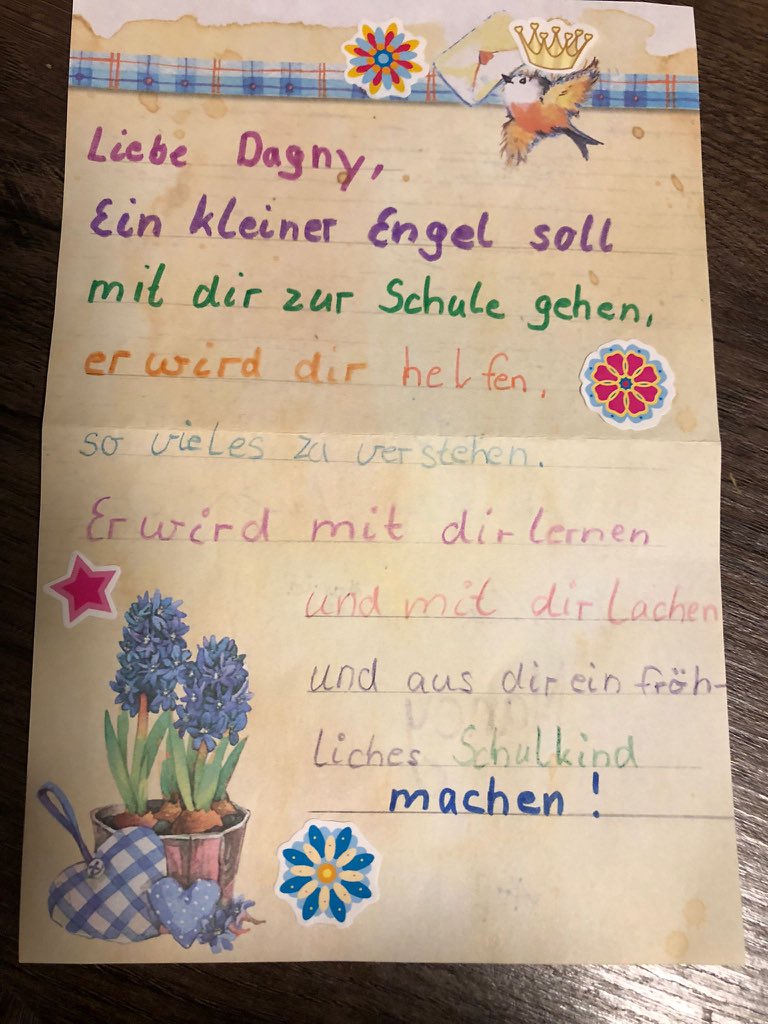 Liebe Dagny,
Ein kleiner Engel soll
mit dir zur Schule gehen,
er wird dir helfen,
so vieles zu verstehen.
Er wird mit dir lernen
und mit dir lachen
und aus dir ein fröh-
liches Schulkind
machen!